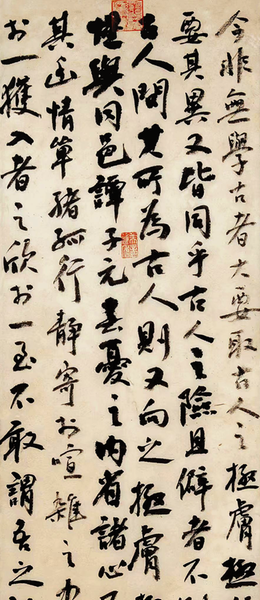 今非無學古者大要取古人之極膚極
要其異又皆同乎古人之險且僻者不
古人問其所為古人則又向之極膚
惺與同邑譚子元春憂之內省諸心
其幽情單緒孤行靜寄於喧雜之
於一獲入者之欣於一至不敢謂吾之